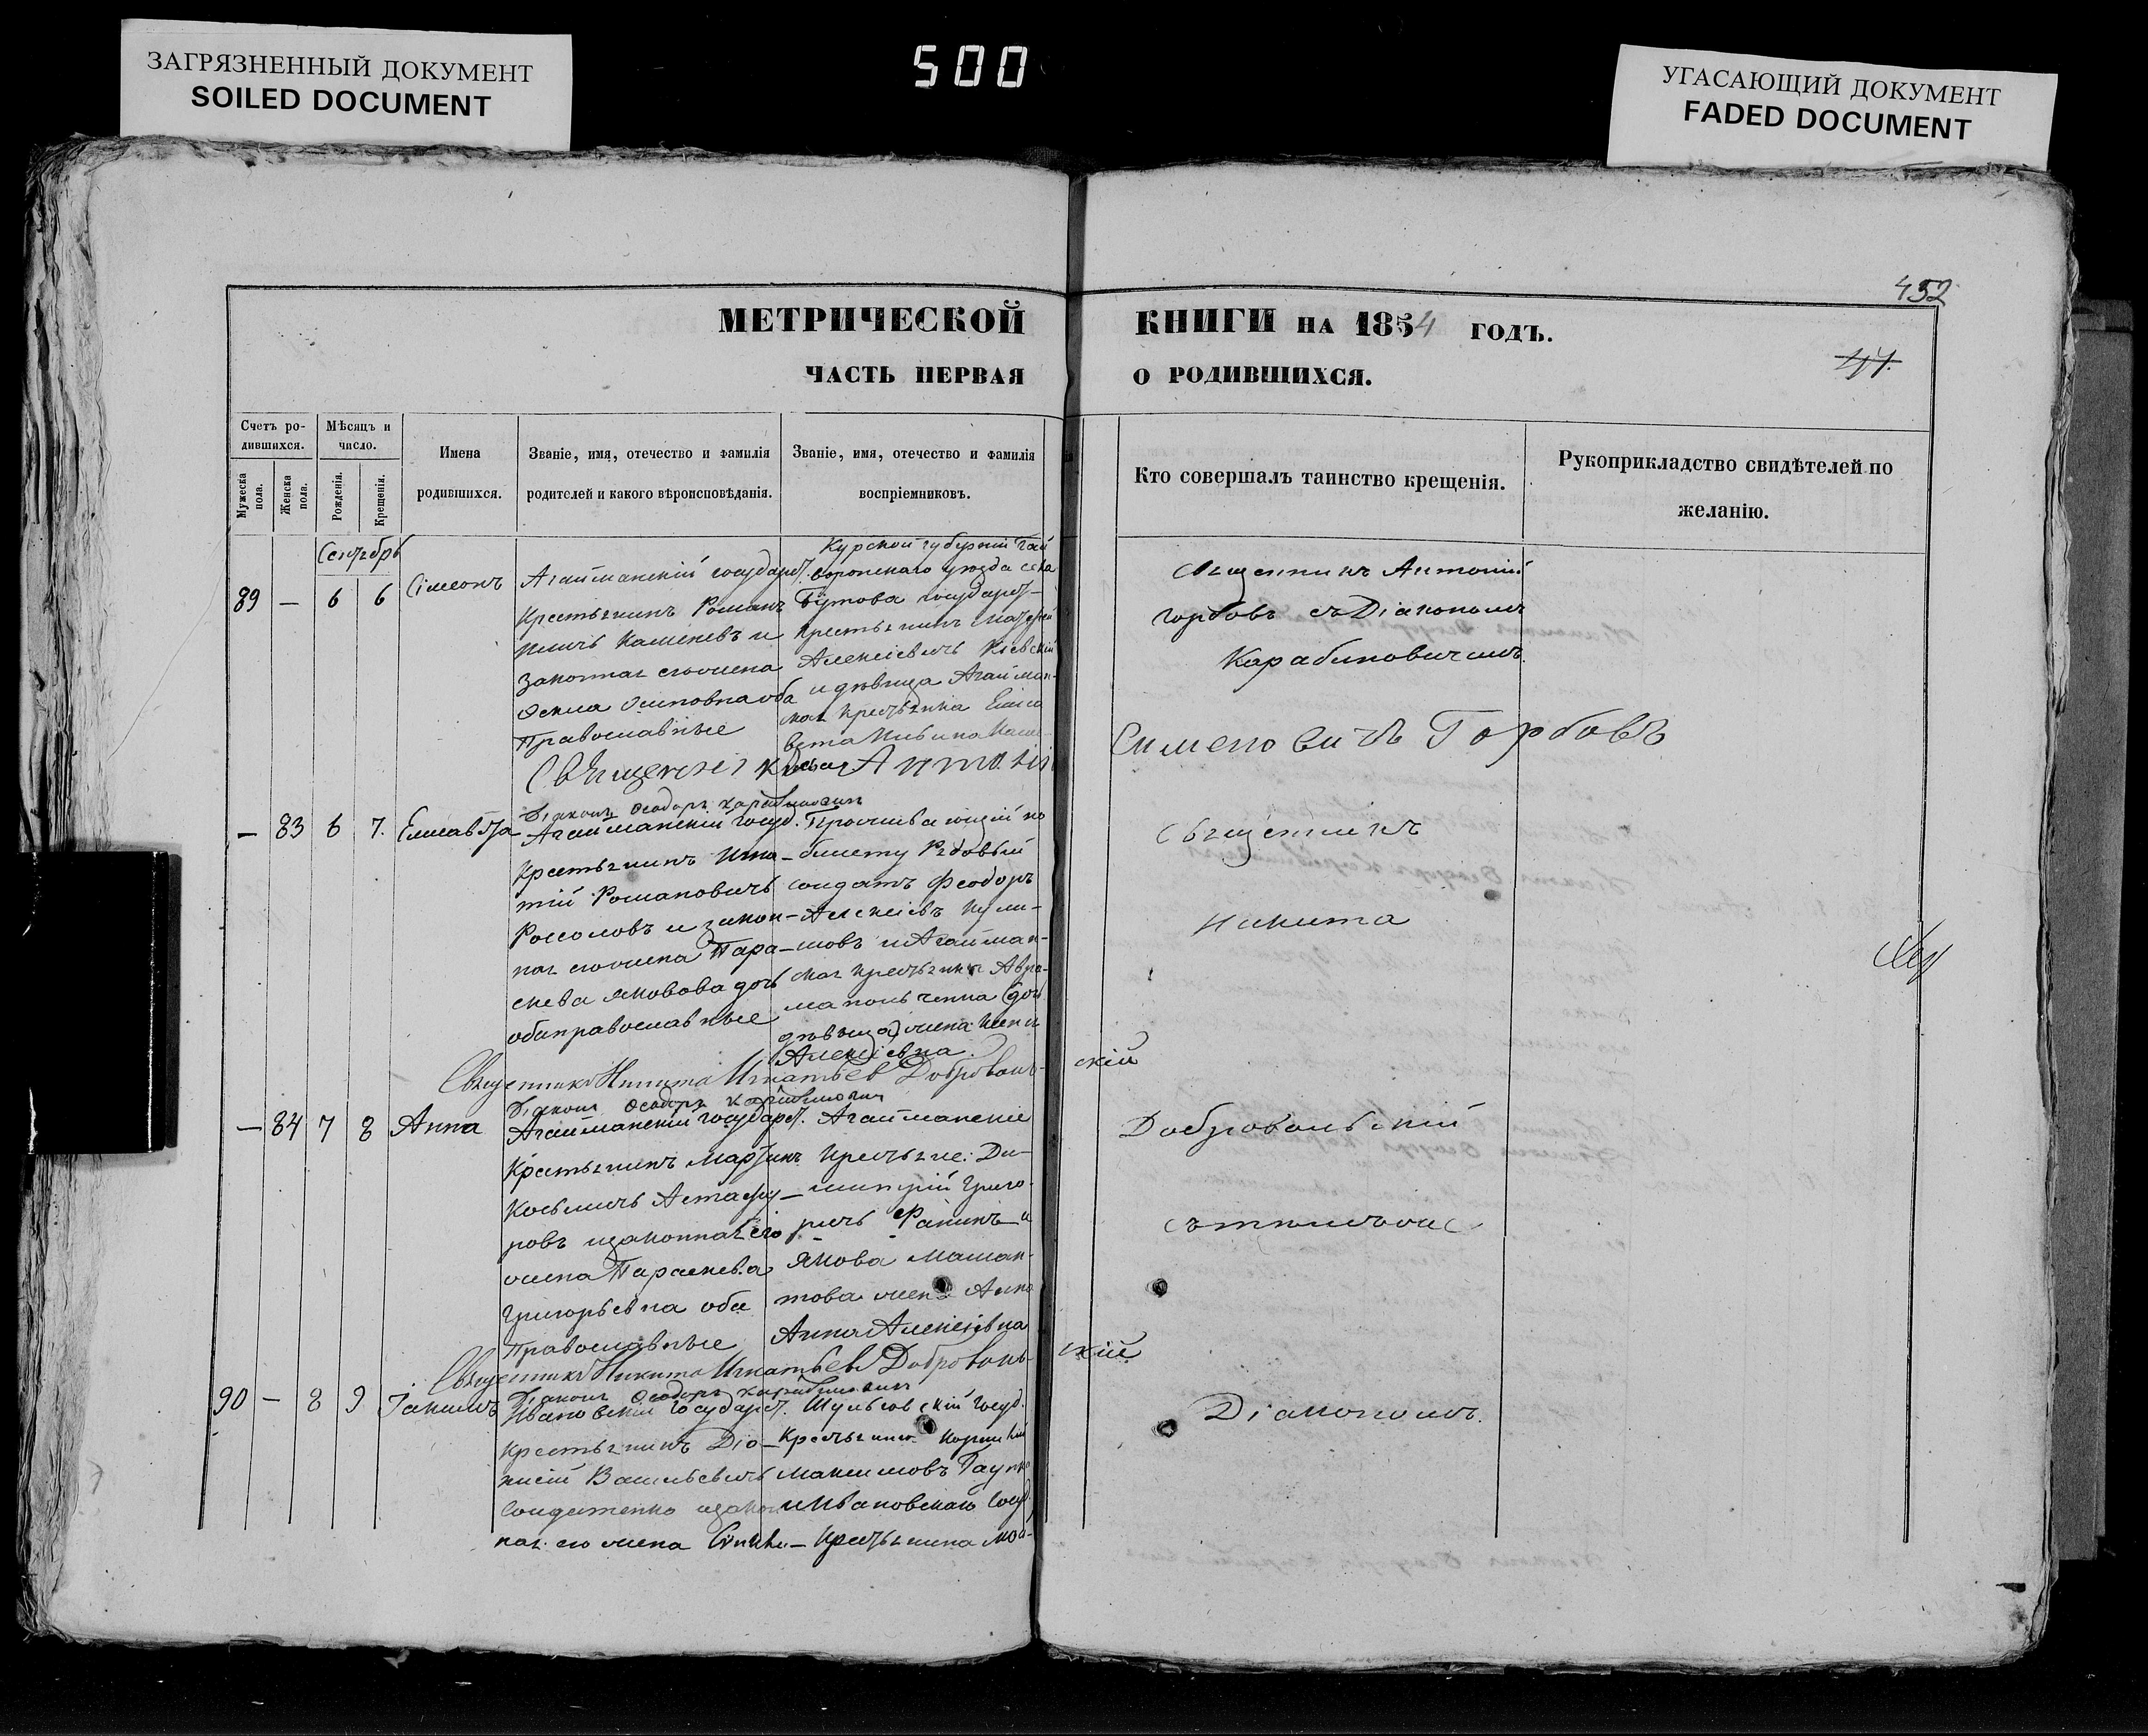 ЗАГРЯЗНЕННЫЙ ДОКУМЕНТ
SOILED DOCUMENT
500
УГАСАЮЩИЙ ДОКУМЕНТ
FADED DOCUMENT
452
МЕТРИЧЕСКОЙ КНИГИ НА 1854 ГОДЪ.
ЧАСТЬ ПЕРВАЯ О РОДИВШИХСЯ.
Счетъ ро-
дившихся.
Мужеска пола.
Женска пола.
Мѣсяцъ и
число.
Рожденія.
Крещенія.
Имена
родившихся.
Званіе, имя, отечество и фамилія
родителей и какого вѣроисповѣданія.
Званіе, имя, отечество и фамилія
воспріемниковъ.
Кто совершалъ таинство крещенія.
Рукоприкладство свидѣтелей по
желанію.
Сентябрь
89 — 6 6 Сімеонъ
Агайманскій государст.
Крестьянинъ Романъ
Каменевъ и
законная его жена
Осиповна оба
Православные
Курской губерніи Гай
воронскаго уѣзда села
государст-
крестьянинъ
Алексіевичъ Кіевскій
и дѣвица Агайман-
ская крестьянка Елиса
вета
Священникъ Антоній
Горбовъ съ Діакономъ
Карабиновичемъ.
Священникъ Антоній Сименовичъ Горбовъ
Діаконъ Ѳеодоръ Карабиновичъ
— 83 6 7. Елисавета
Агайманскій госуд.
Крестьянинъ Игна-
тій Романовичъ
Россоловъ и закон-
ная его жена Пара-
скева Яковова дочь
оба православные
Проживающій по
билету Рядовый
солдатъ Феодоръ
Алексіевъ Кули-
шовъ и Агайман-
ская крестьянка Авра-
дочь
дѣвица) жена
Алексіевна.
Священникъ
Никита
Священникъ Никита Игнатьевъ Добровольскій
Діаконъ Ѳеодоръ Карабиновичъ
— 84 7 8 Анна
Агайманскій государст.
Крестьянинъ Мартинъ
Косьмичъ Астафу-
ровъ и законная его
жена Параскева
Григорьевна оба
Православные
Агайманскіе
Крестьяне: Ди-
митрій Григо-
ричъ Фанинъ и
Якова Машан-
това жена Анна
Анна Алексіевна
Добровольскій
съ тѣмъ же
Священникъ Никита Игнатьевъ Добровольскій
Діаконъ Ѳеодоръ Карабиновичъ
90 — 8 9 Іакимъ
Ивановскій Государст.
Крестьянинъ Діо-
нисій Васильевичъ
Солдатенко и закон
ная его жена
госуд.
Крестьянинъ Корнилій
Максимовъ
и Ивановскаго Госуд.
Крестьянина
Діакономъ.